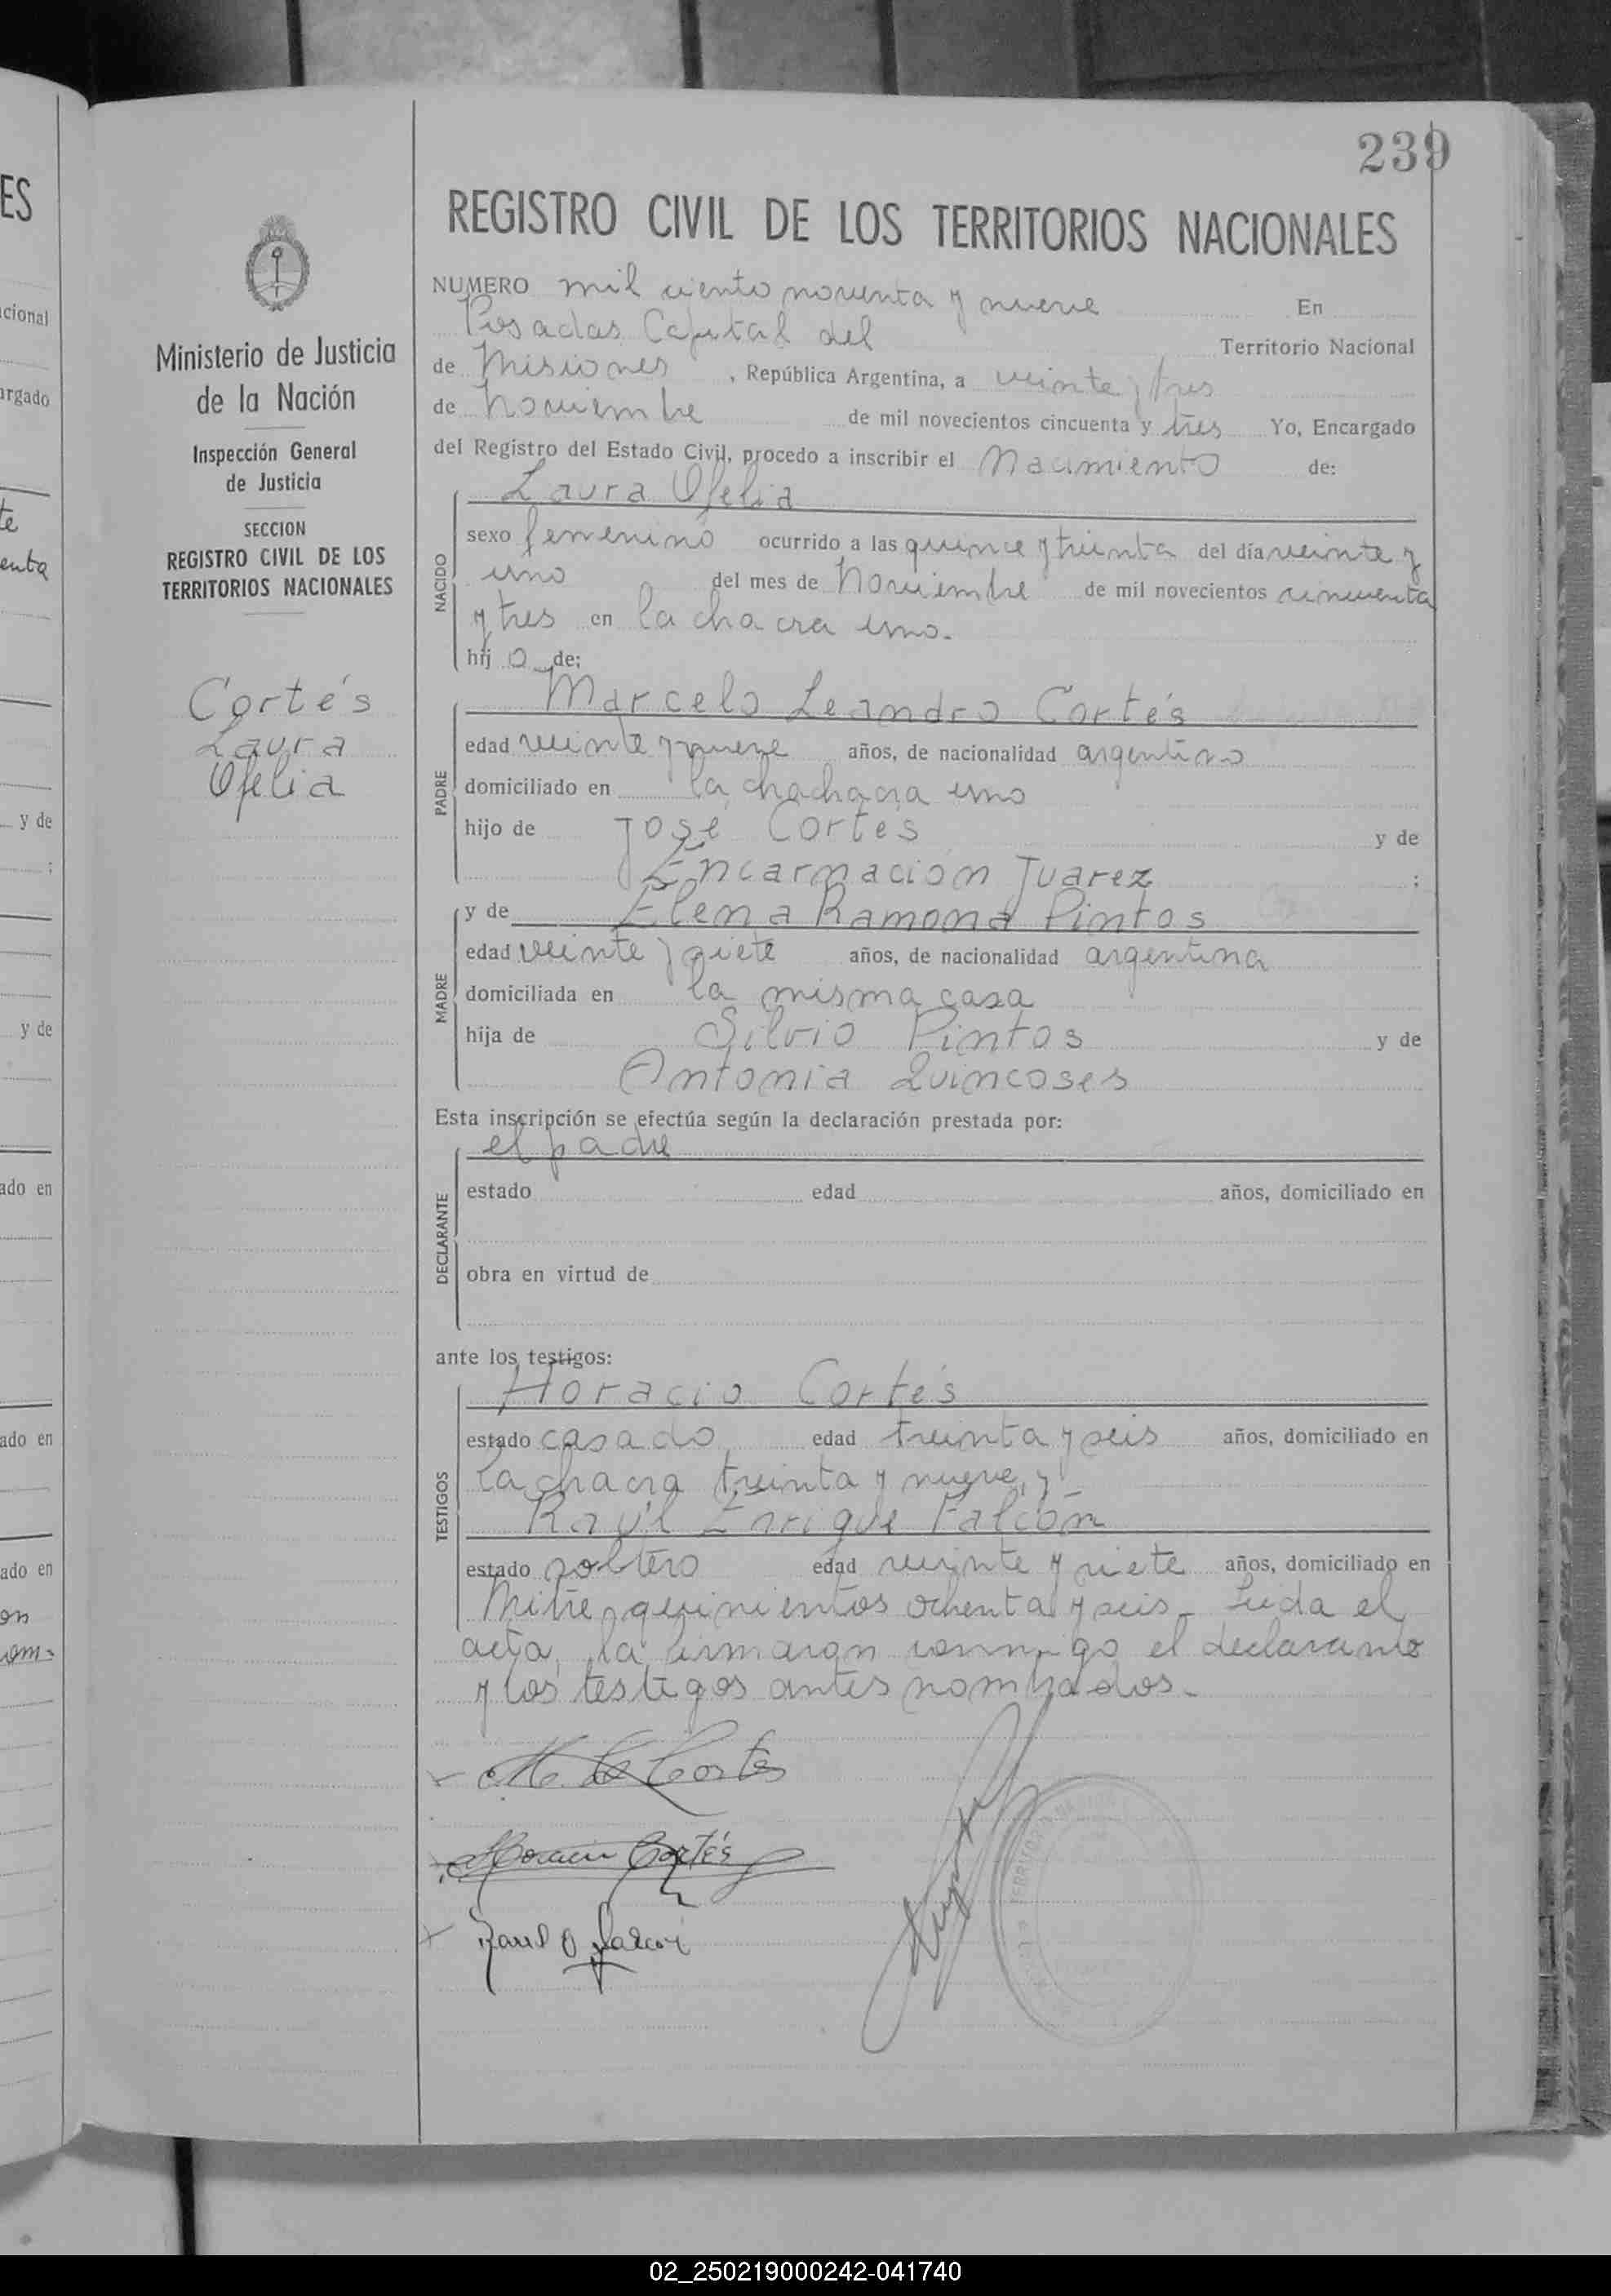 239
REGISTRO CIVIL DE LOS TERRITORIOS NACIONALES
NUMERO mil ciento noventa y nueve En
Posadas Capital del Territorio Nacional
de Misiones, República Argentina, a veinte y tres
de Noviembre de mil novecientos cincuenta y tres Yo, Encargado
del Registro del Estado Civil, procedo a inscribir el Nacimiento de:
Laura Ofelia
NACIDO
sexo femenino ocurrido a las quince y treinta del día veinte y
uno del mes de Noviembre de mil novecientos cincuenta
y tres en la chacra uno.
hij o de:
Marcelo Leandro Cortés
PADRE
edad veinte y nueve años, de nacionalidad argentino
domiciliado en la chachacra uno
hijo de José Cortés y de
Encarnación Juarez ;
MADRE
y de Elena Ramona Pintos
edad veinte y siete años, de nacionalidad argentina
domiciliada en la misma casa
hija de Silvio Pintos y de
Antonia Quincoses
Esta inscripción se efectúa según la declaración prestada por:
el padre
DECLARANTE
estado edad años, domiciliado en
obra en virtud de
ante los testigos:
Horacio Cortés
TESTIGOS
estado casado edad treinta y seis años, domiciliado en
la chacra treinta y nueve, y
Raúl Enrique Falcón
estado soltero edad veinte y siete años, domiciliado en
Mitre quinientos ochenta y seis. Leida el
acta, la firmaron conmigo el declarante
y los testigos antes nombrados.
M. L. Cortés
Horacio Cortés
Ministerio de Justicia
de la Nación
Inspección General
de Justicia
SECCION
REGISTRO CIVIL DE LOS
TERRITORIOS NACIONALES
Cortés
Laura
Ofelia
ES
cional
argado
te
enta
y de
;
y de
ado en
ado en
ado en
on
om-
02_250219000242-041740